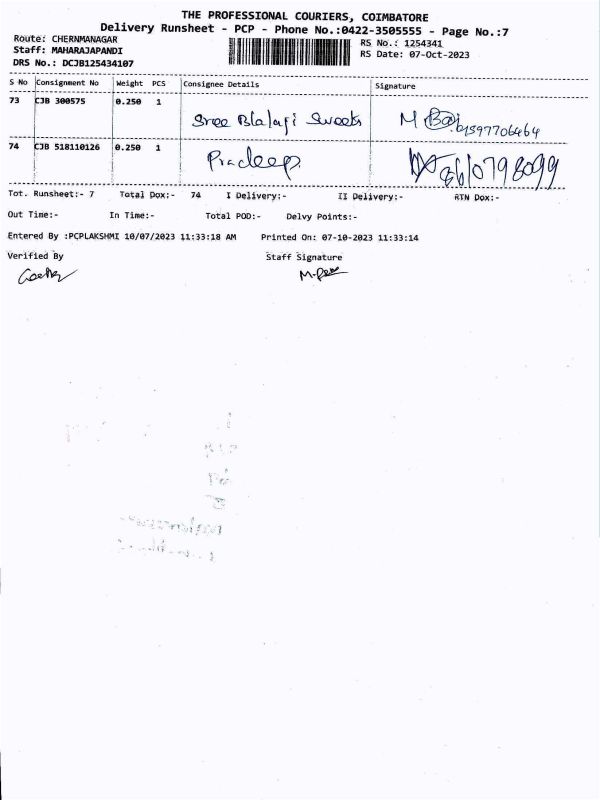 THE PROFESSIONAL COURIERS, COIMBATORE
Delivery Runsheet - PCP - Phone No.:0422-3505555 - Page No.:7
Route: CHERNMANAGAR RS No.: 1254341
Staff: MAHARAJAPANDI RS Date: 07-Oct-2023
DRS No.: DCJB125434107
S No Consignment No Weight PCS Consignee Details Signature
73 CJB 300575 0.250 1 Sree Blalaji Sweets M
74 CJB 518110126 0.250 1 Pradeep
Tot. Runsheet:- 7 Total Dox:- 74 I Delivery:- II Delivery:- RTN Dox:-
Out Time:- In Time:- Total POD:- Delvy Points:-
Entered By :PCPLAKSHMI 10/07/2023 11:33:18 AM Printed On: 07-10-2023 11:33:14
Verified By Staff Signature